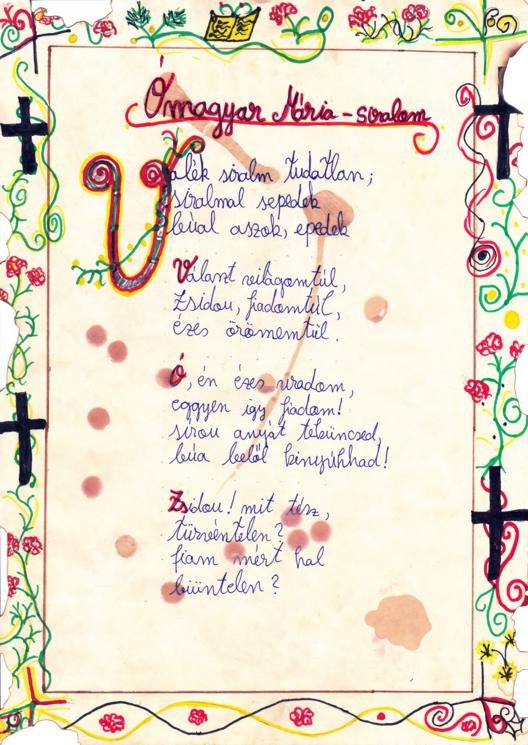 Ómagyar Mária-siralom
Valék siralm tudatlan;
siralmal sepedek
búal aszok, epedek
Választ világomtúl,
Zsidou, fiadomtúl,
ézes örömemtűl.
Ó, én ézes uradom,
eggyen így fiadom!
sírou anyát teküncsed,
búa belől kinyúhhad!
Zsidou! mit tész,
türvéntelen?
fiam mért hal
büüntelen?